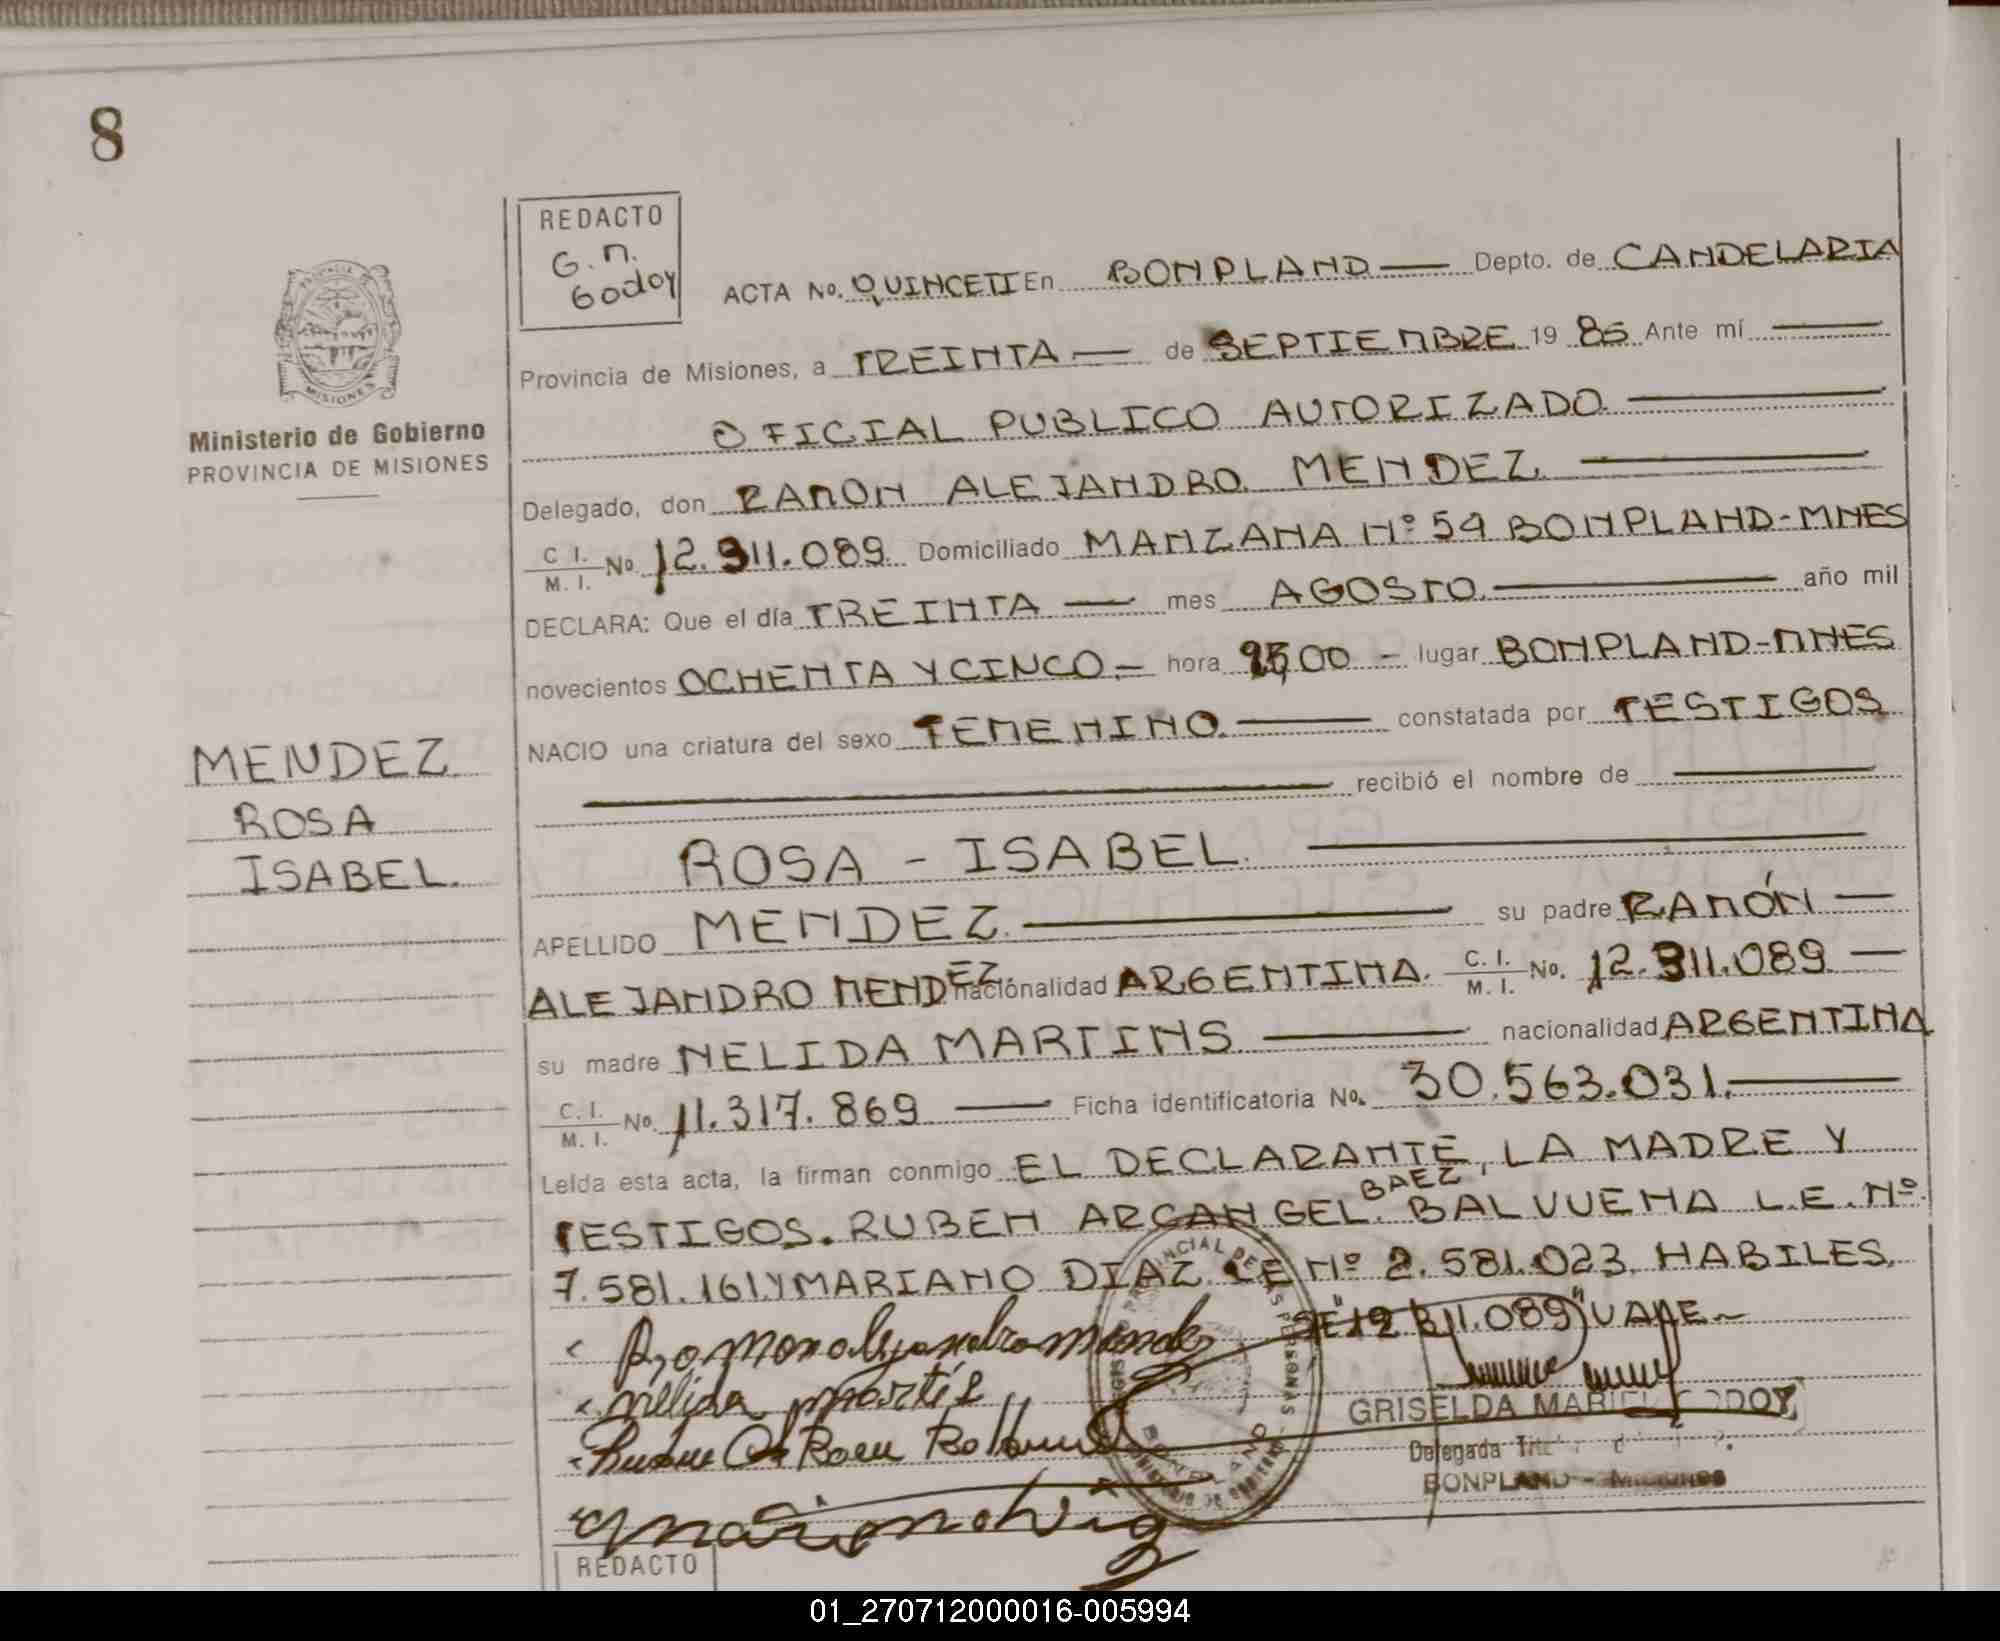 8
REDACTO
G. M.
Godoy
ACTA No. QUINCETI En BONPLAND — Depto. de CANDELARIA
Provincia de Misiones, a TREINTA — de SEPTIEMBRE 19 85 Ante mí —
OFICIAL PUBLICO AUTORIZADO —
Delegado, don RAMON ALEJANDRO MENDEZ —
C. I. / M. I. No 12.311.089 Domiciliado MANZANA Nº 54 BONPLAND-MNES
DECLARA: Que el día TREINTA — mes AGOSTO — año mil
novecientos OCHENTA Y CINCO — hora ,00 — lugar BONPLAND-MNES
NACIO una criatura del sexo FEMENINO — constatada por TESTIGOS
— recibió el nombre de —
ROSA - ISABEL. —
APELLIDO MENDEZ — su padre RAMÓN —
ALEJANDRO MENDEZ. nacionalidad ARGENTINA. C. I. / M. I. No. 12.311.089 —
su madre NELIDA MARTINS — nacionalidad ARGENTINA
C. I. / M. I. No. 11.317.869 — Ficha identificatoria No. 30.563.031. —
Leída esta acta, la firman conmigo EL DECLARANTE, LA MADRE Y
BAEZ
TESTIGOS. RUBEN ARCANGEL. BALVUENA L.E. Nº
7.581.161 Y MARIANO DIAZ LE Nº 2.581.023. HABILES.
"12 311.089" VALE ~
Ramon alejandro mendez
nelida martis
GRISELDA MARIEL GODOY
Delegada
BONPLAND - Misiones
REDACTO
Ministerio de Gobierno
PROVINCIA DE MISIONES
MENDEZ
ROSA
ISABEL.
MISIONES
01_270712000016-005994